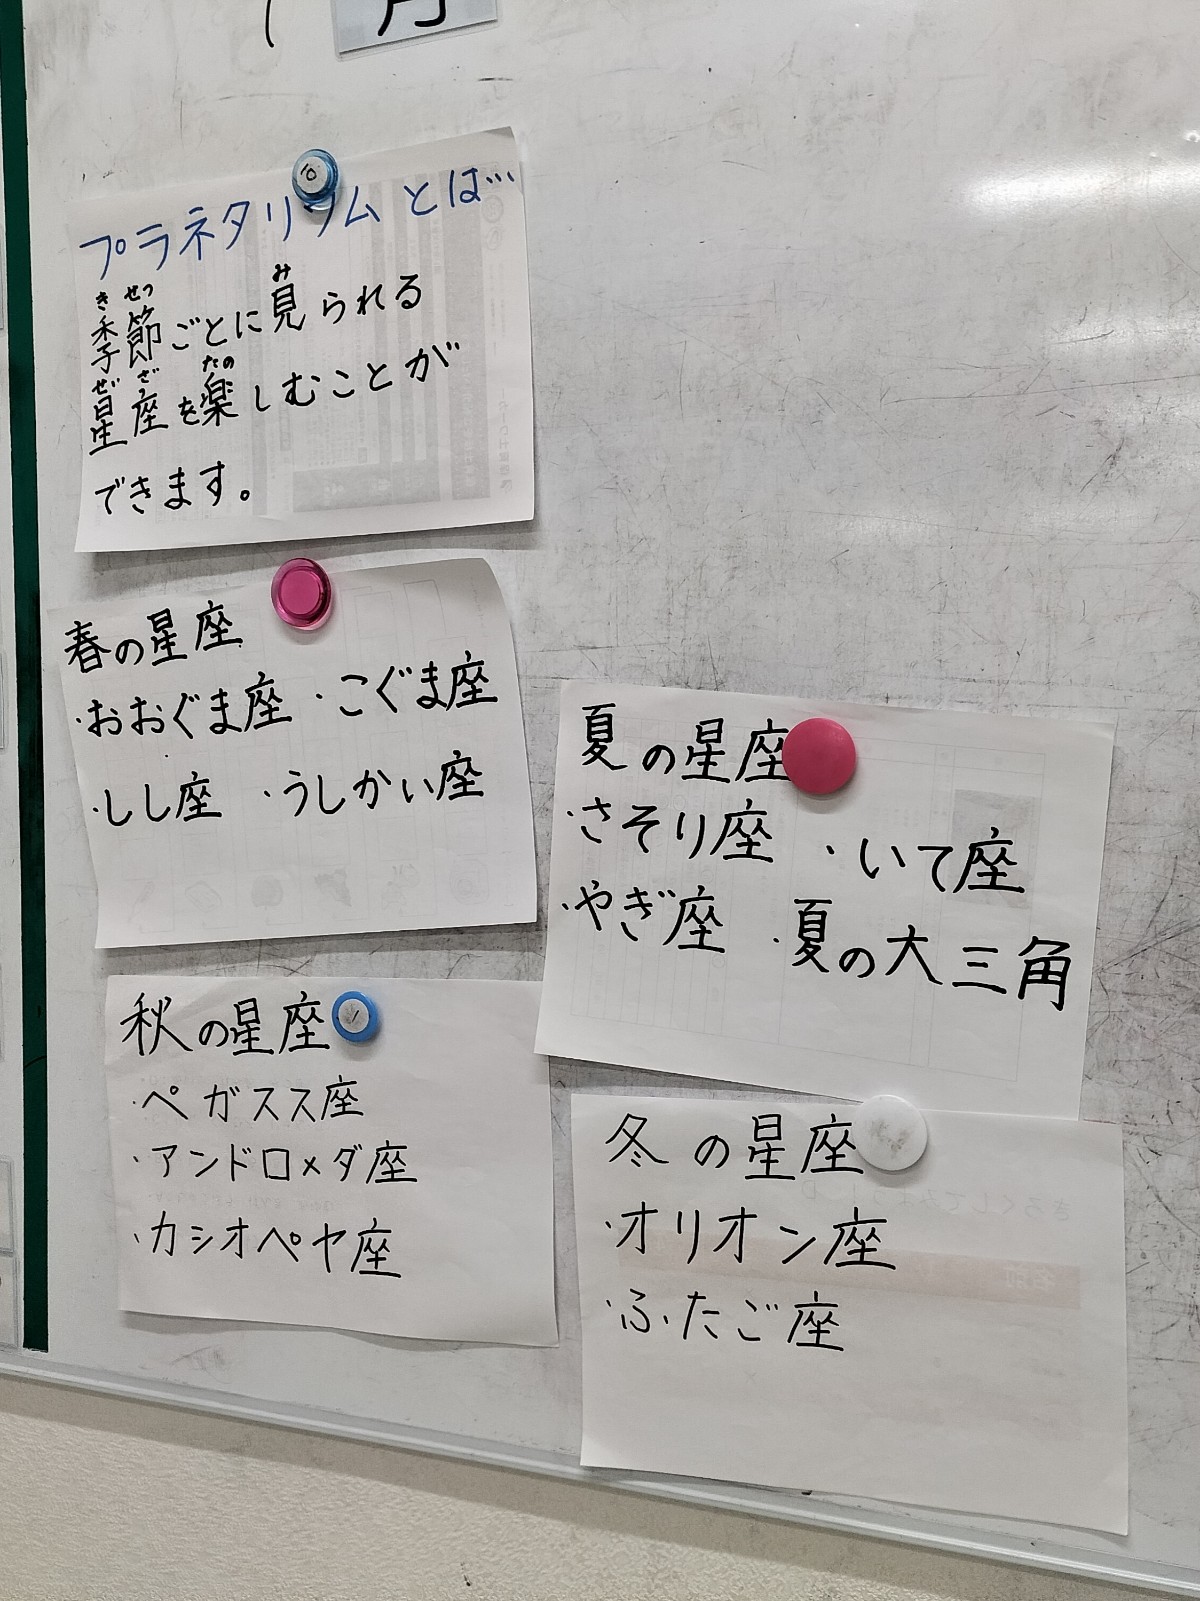 月
プラネタリウムとは…
きせつ み
季節ごとに見られる
ぜざ たの
星座を楽しむことが
できます。
春の星座
・おおぐま座 ・こぐま座
・しし座 ・うしかい座
夏の星座
・さそり座 ・いて座
・やぎ座 ・夏の大三角
秋の星座
・ペガスス座
・アンドロメダ座
・カシオペヤ座
冬の星座
・オリオン座
・ふたご座